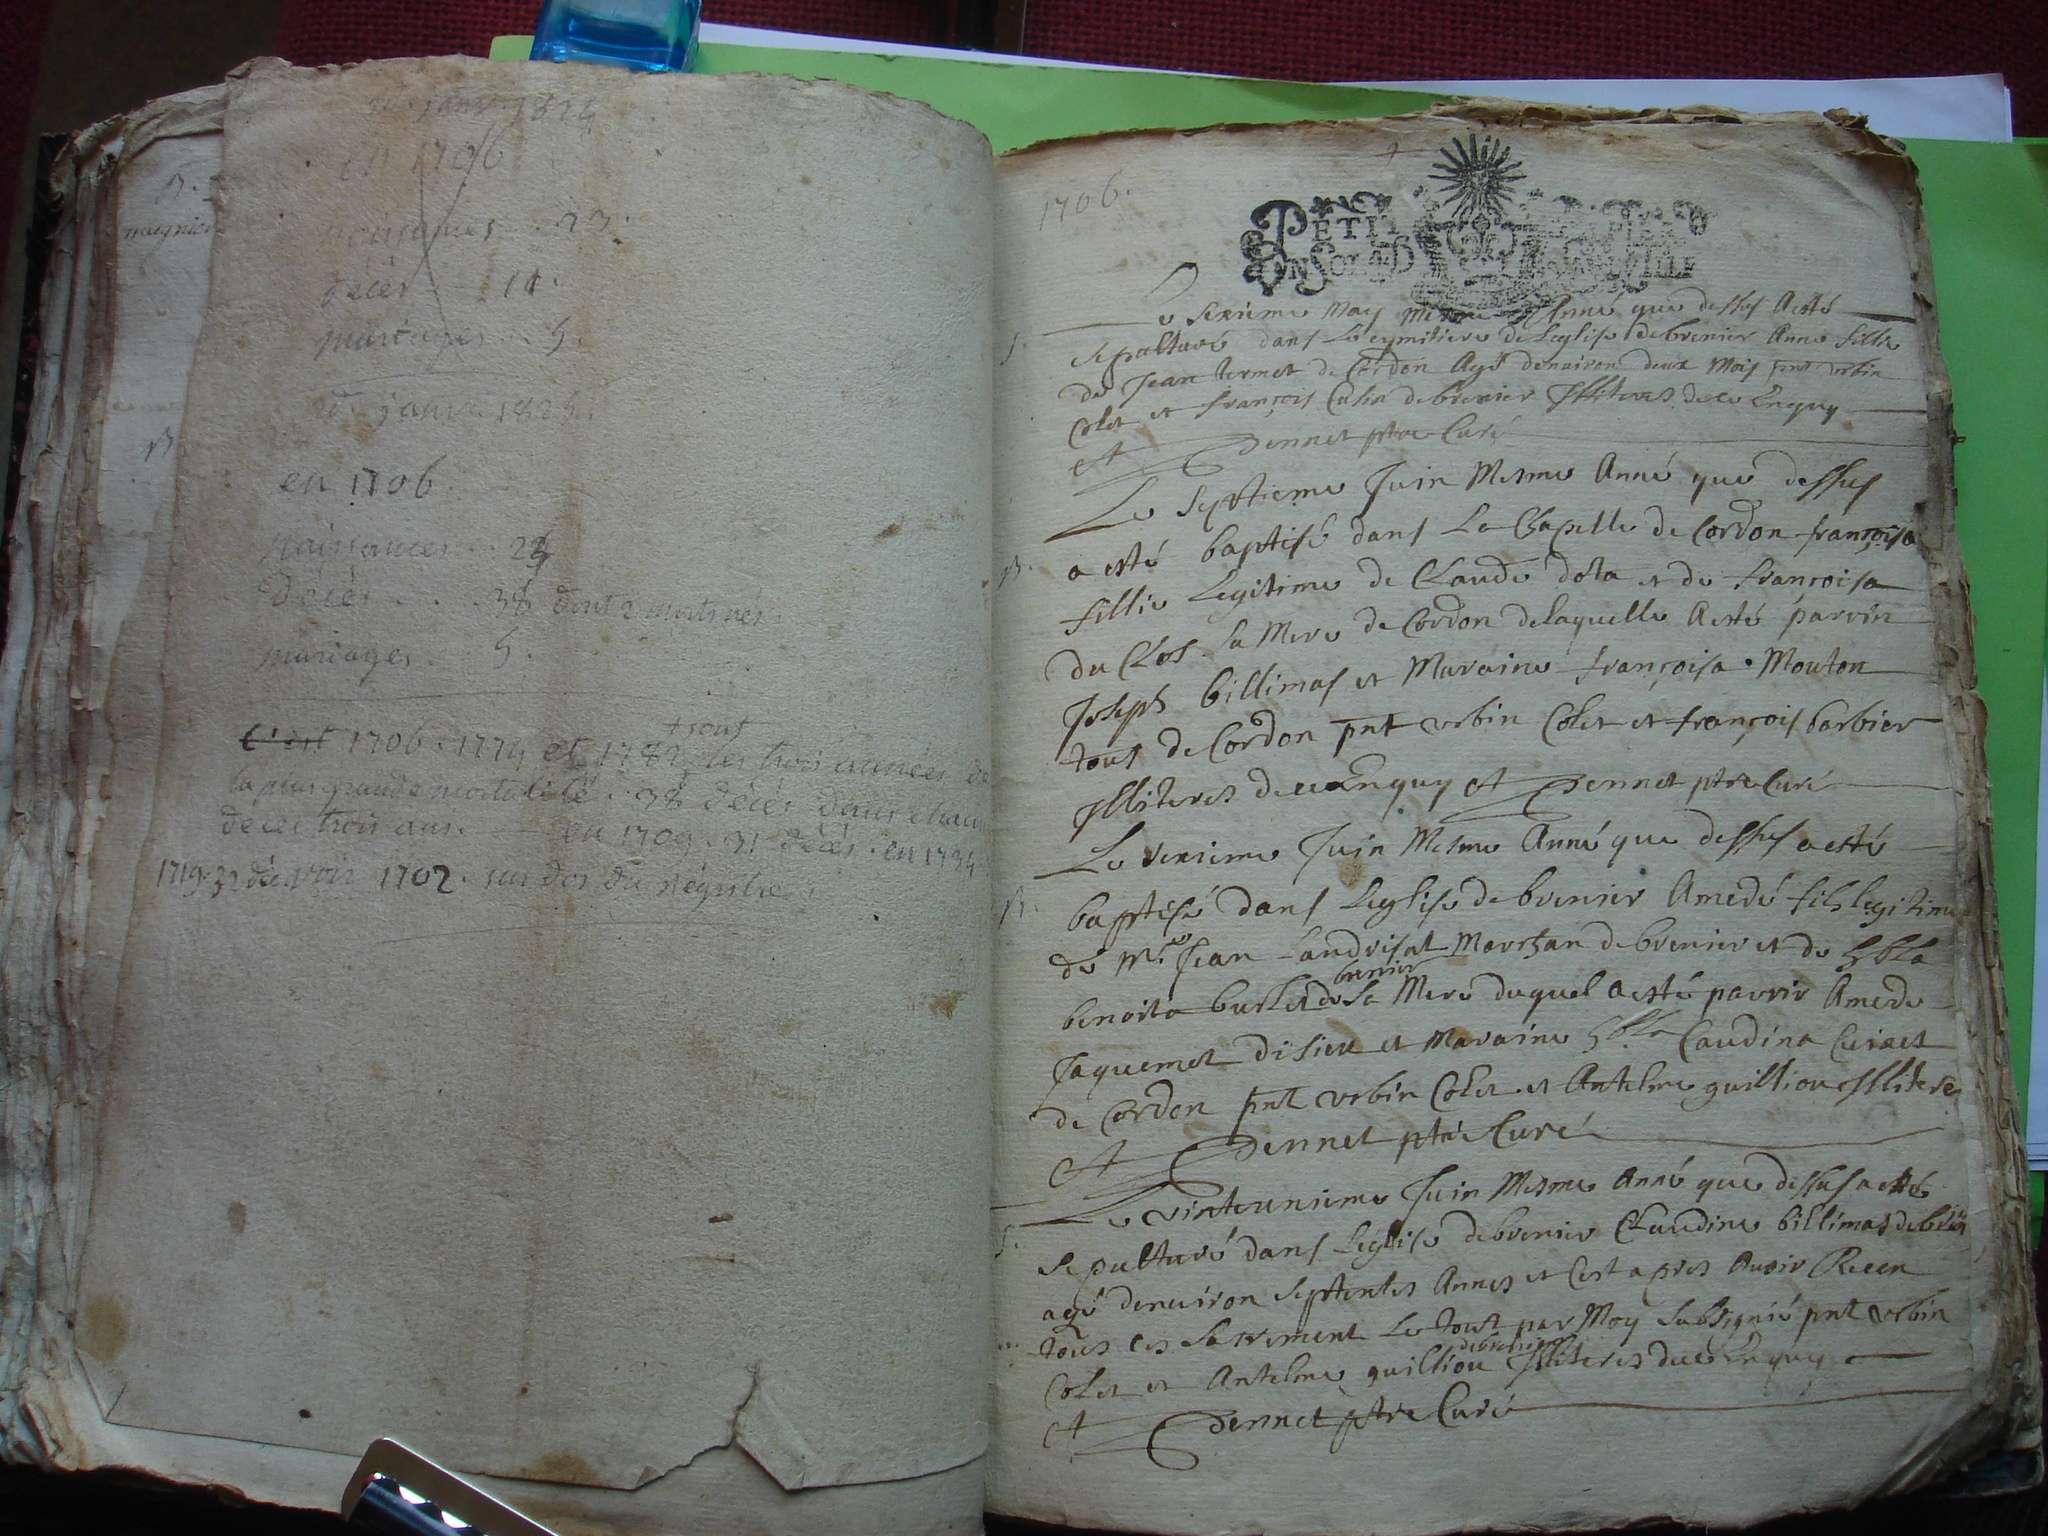 en janv. 1824
en 1706
naissances . 23.
décès 11.
mariages . . 5.
en janv. 1825.
en 1706.
naissances . . 23
Décès . . . 38 dont 2 mortsnés.
mariages . 5.
C'est 1706. 1774 et 1782 sont les trois années de
la plus grande mortalité . 38 décès dans chacun
de ces trois ans. en 1709. 31 décès. en 1734
1719. 32 déc. voir 1702. sur dos du régistre.
B.
B.
1706.
PETIT
Le sexieme May mesme Anné que dessus Aesté
S. sepulturé dans Le cymitiere de Leglise debrenier Anne fillie
de Jean termet de Cordon Agé denviron deux Mois pnt vrbin
Colet et françois Culin debrenier Illiteres dece Enquy
et Dennet ptre Curé
Le septieme Juin Mesme Anné que dessus
B. a esté baptisé dans La Chapelle de Cordon françoisa
fillie Legitime de Claude dola et de françoisa
du Clos sa Mere de Cordon delaquelle Aesté parrin
Joseph billimas et Maraine françoisa Mouton
tous de Cordon pnt vrbin Colet et françois barbier
Illiteres dece Enquy et Dennet ptre Curé
Le sexieme Juin Mesme Anné que dessus a esté
B. baptisé dans Leglise debrenier Amedé fils legitime
de Mre Jean Landrisat Marchan debrenier et de hble
benoita de brenier sa Mere duquel aesté parrir Amede
Jaquemet disieu et Maraine hble Caudina Curaet
de Cordon pnt vrbin Colet et Antelme guilliou Illitere
et Dennet ptre Curé
Le vinteunieme Juin Mesme Anné que dessus aesté
S. sepulturé dans Leglise debrenier Claudine billimas debrier
agé denviron septentes Annes et Cest apres Avoir Receu
tous ces sacrement Le tout par Moy subsignié pnt vrbin
Colet et Antelme guilliou debrenier Illiteres dece Enquy
et Dennet ptre Curé